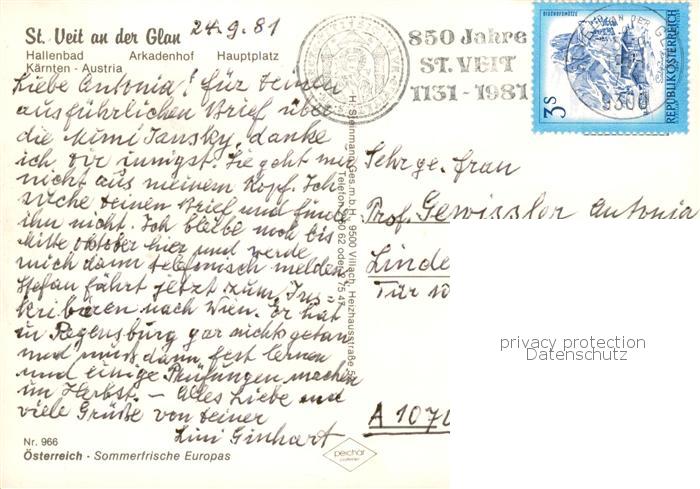 St. Veit an der Glan
24.9.81
Hallenbad Arkadenhof Hauptplatz
Kärnten - Austria
Liebe Antonia! für deinen
ausführlichen Brief über
die Mimi Jansky, danke
ich Dir innigst. Sie geht mir
nicht aus meinem Kopf. Ich
suche deinen Brief und finde
ihn nicht. Ich bleibe noch bis
Mitte Oktober hier und werde
mich dann telefonisch melden
Stefan fährt jetzt zum Ins-
kribiren nach Wien. Er hat
in Regensburg gar nichts getan
und muss dann fest lernen
und einige Prüfungen machen
im Herbst. – Alles Liebe und
viele Grüße von deiner
Lini Ginhart
Nr. 966
Österreich - Sommerfrische Europas
H. Steinmann Ges.m.b.H. 9500 Villach, Heizhausstraße
Telefon
peichär
850 Jahre
ST. VEIT
1131-1981
3S
REPUBLIK ÖSTERREICH
9300
Sehr ge. Frau
Prof. Gewissler Antonia
Linde
Tür 10
A 1070
privacy protection
Datenschutz